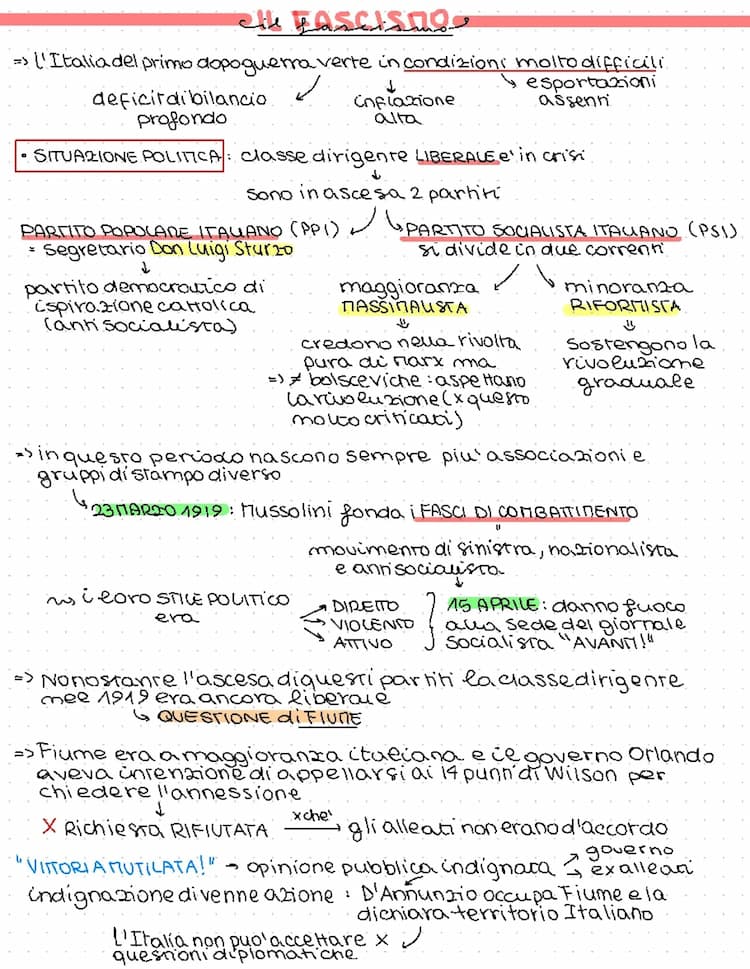 IL FASCISMO
il fascismo
=> l'Italia del primo dopoguerra verte in condizioni molto difficili
deficit di bilancio profondo
inflazione alta
esportazioni assenti
• SITUAZIONE POLITICA: classe dirigente LIBERALE e' in crisi
sono in ascesa 2 partiti
PARTITO POPOLARE ITALIANO (PPI)
= segretario Don Luigi Sturzo
partito democratico di
ispirazione cattolica
(antisocialista)
PARTITO SOCIALISTA ITALIANO (PSI)
si divide in due correnti
maggioranza
MASSIMALISTA
credono nella rivolta
pura di Marx ma
=> ≠ bolsceviche: aspettano
la rivoluzione (x questo
molto criticati)
minoranza
RIFORMISTA
sostengono la
rivoluzione
graduale
=> in questo periodo nascono sempre piu' associazioni e
gruppi di stampo diverso
23 MARZO 1919: Mussolini fonda i FASCI DI COMBATTIMENTO
movimento di sinistra, nazionalista
e antisocialista
i loro STILE POLITICO
era
DIRETTO
VIOLENTO
ATTIVO
15 APRILE: danno fuoco
alla sede del giornale
socialista "AVANTI!"
=> Nonostante l'ascesa di questi partiti la classe dirigente
nel 1919 era ancora liberale
QUESTIONE di FIUME
=> Fiume era a maggioranza italiana e il governo Orlando
aveva intenzione di appellarsi ai 14 punti di Wilson per
chiedere l'annessione
X Richiesta RIFIUTATA xche' gli alleati non erano d'accordo
"VITTORIA MUTILATA!" → opinione pubblica indignata
governo
ex alleati
indignazione divenne azione : D'Annunzio occupa Fiume e la
dichiara territorio Italiano
L'Italia non puo' accettare x
questioni diplomatiche